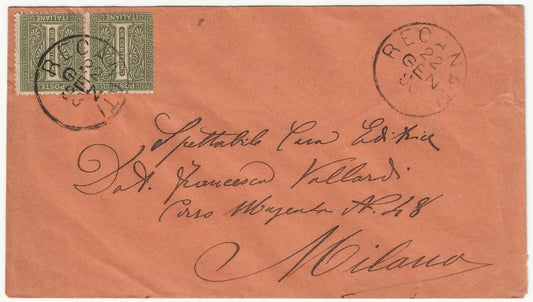 POSTE ITALIANE
POSTE ITALIANE
RECANATI
22
GEN
RECANATI
22
GEN
Spettabile Casa Editrice
Dott. Francesco Vallardi
Corso Magenta N. 48
Milano